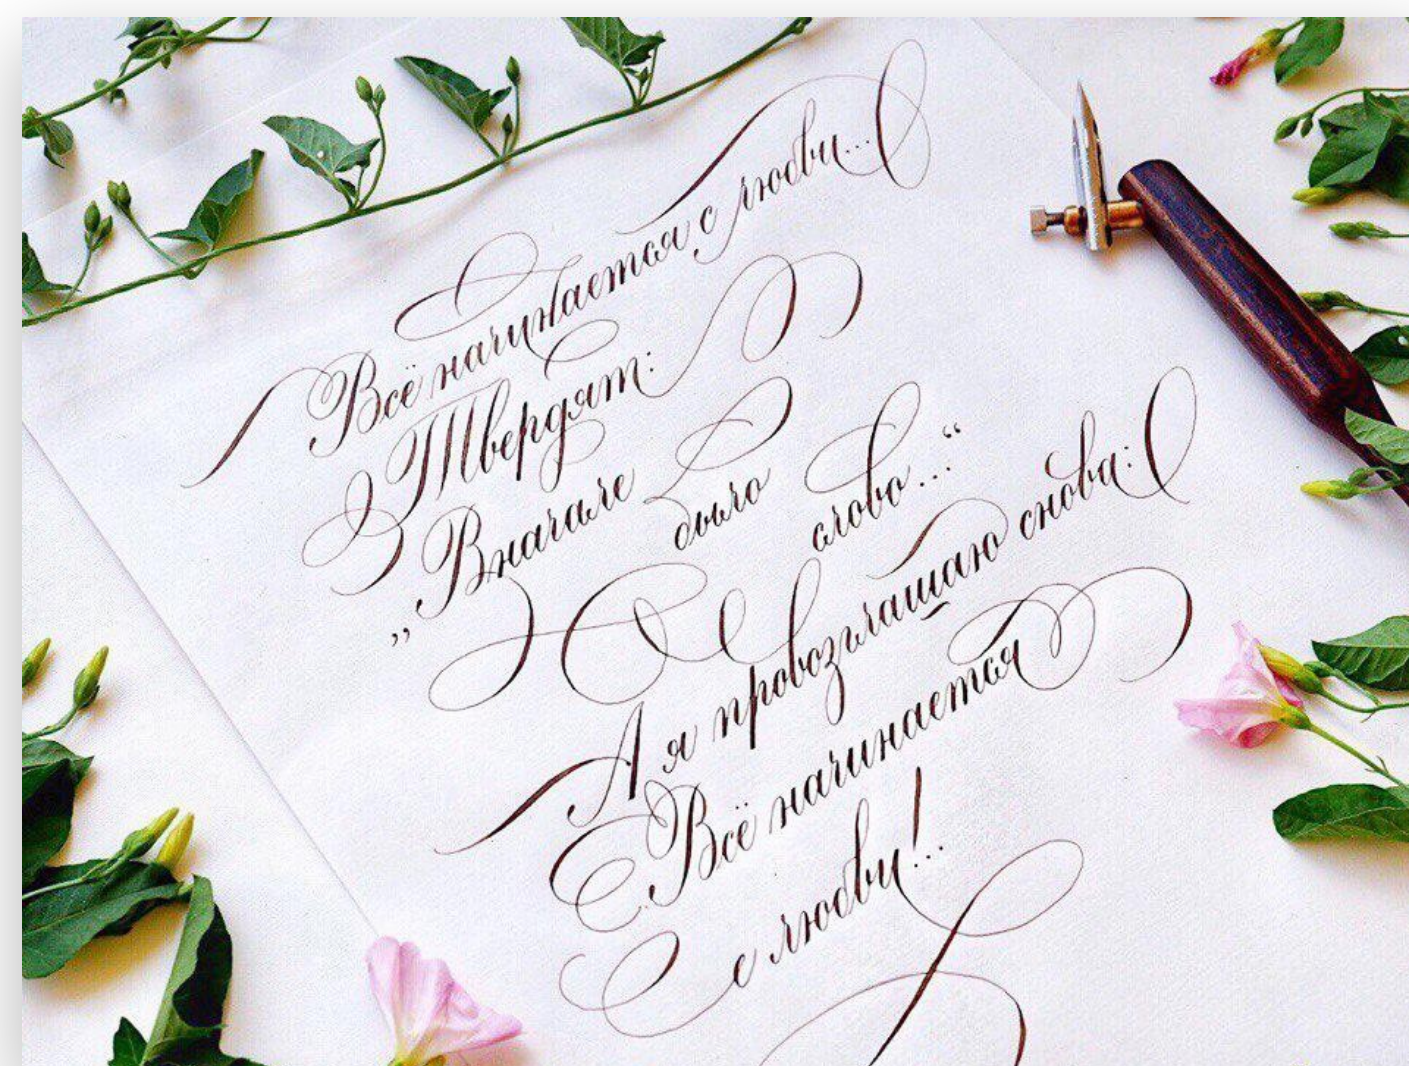 Всё начинается с любви...
Твердят:
„Вначале было слово...“
А я провозглашаю снова:
Всё начинается
с любви!..